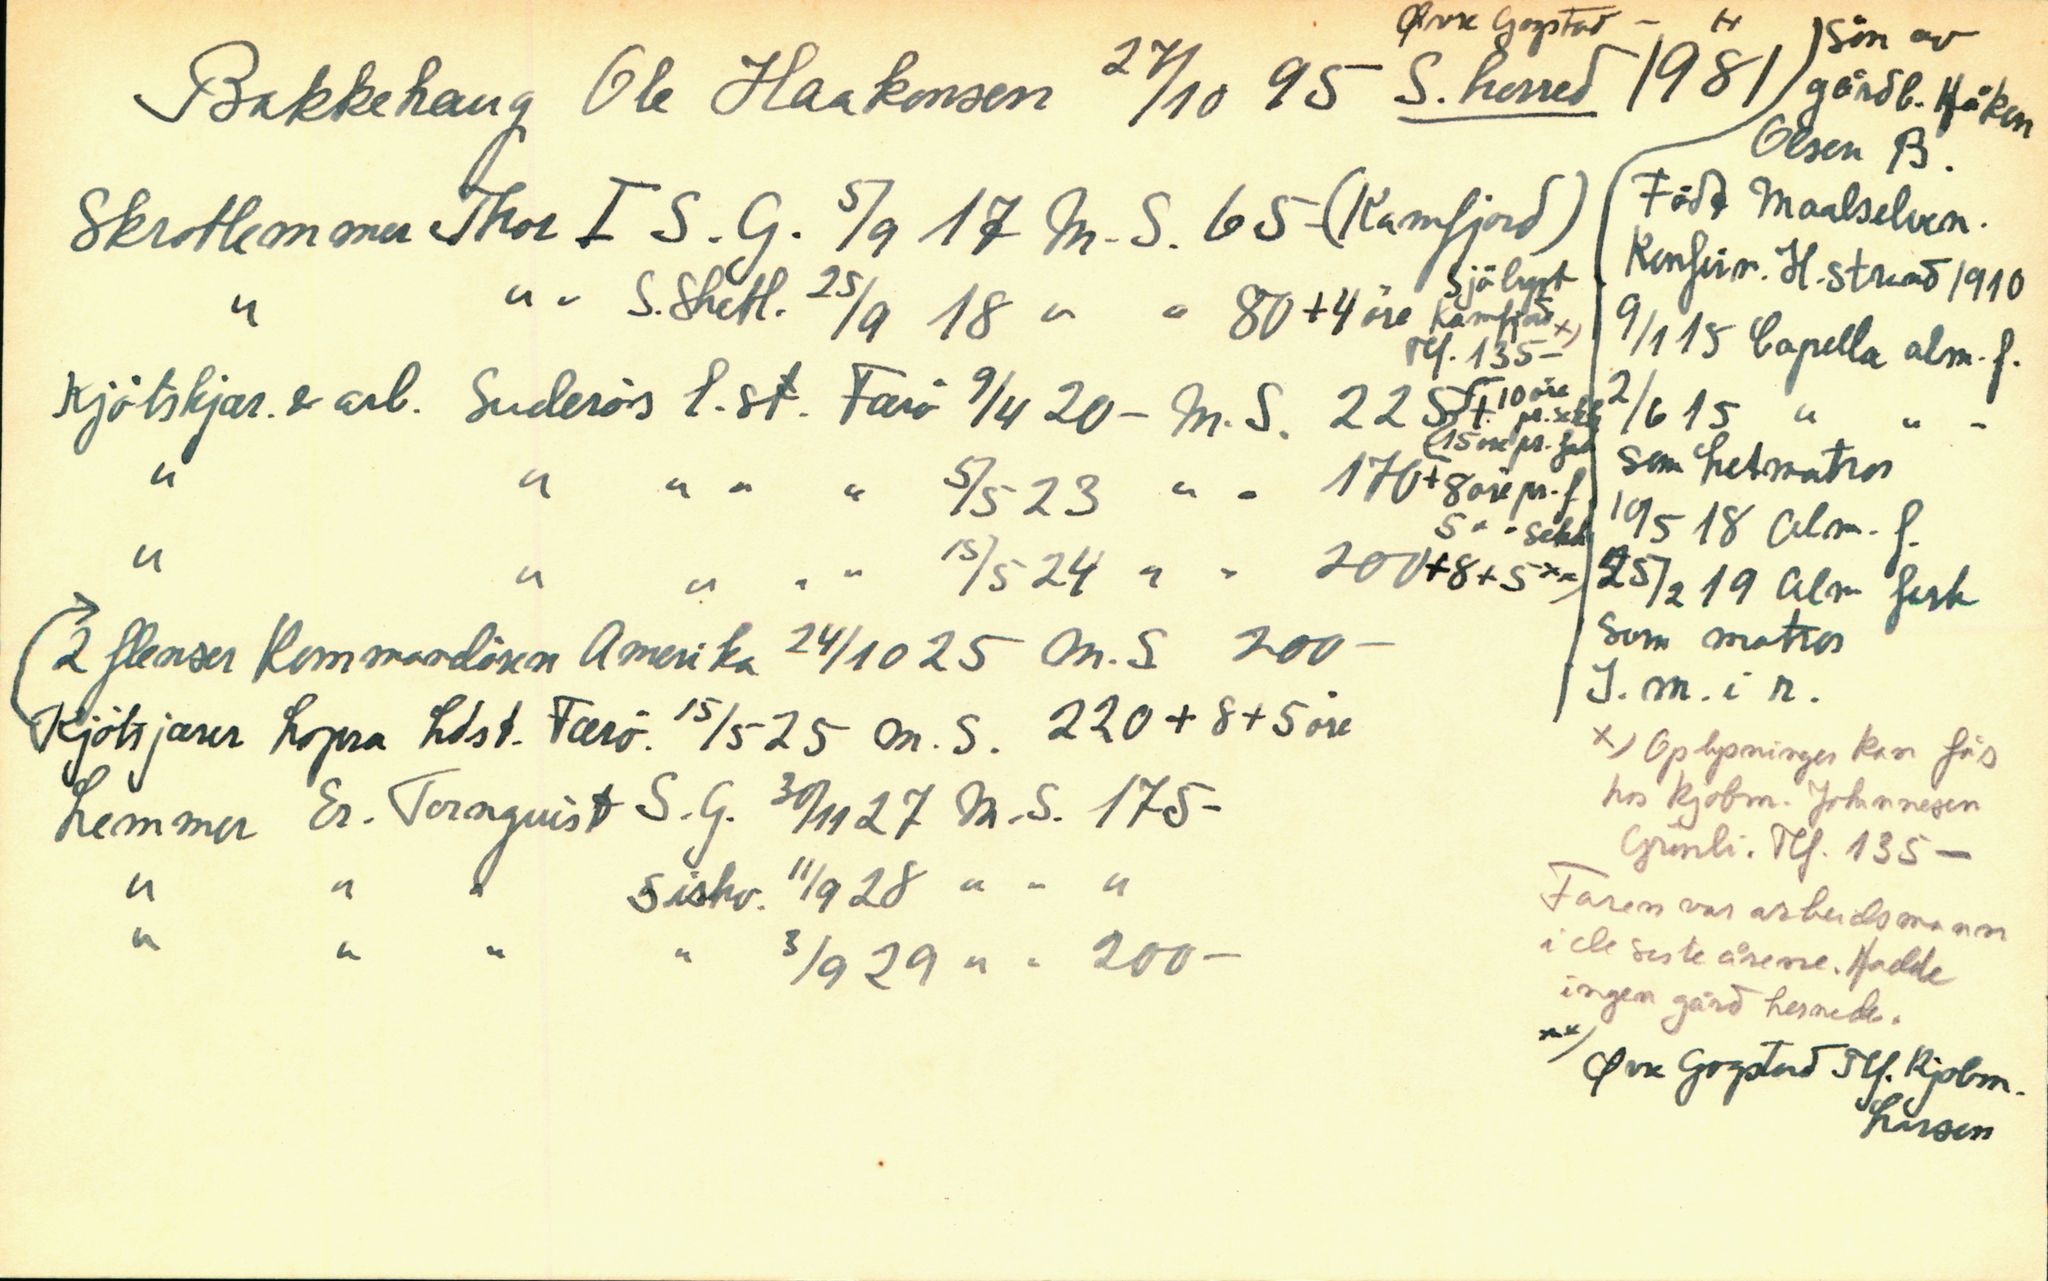 Øvre Gogstad –
Bakkehaug Ole Haakonsen 27/10 95 S. herred 1981
Sön av
gårdb. Håken
Olsen B.
Skrotlemmer Thor I S. G. 5/9 17 M. S. 65 – (Kamfjord)
" " " S. Shetl. 25/9 18 " " 80 + 4 öre
Kamfjord x)
Tlf. 135 –
Kjötskjær. & arb. Suderös l. st. Færö 9/4 20 – M. S. 225
+ 10 öre
pr. sekk
(15 öre pr. fat
" " " " " 5/5 23 " " 170 + 8 öre pr. f.
5 " " sekk
" " " " " 15/5 24 " " 200 + 8 + 5 xx)
2 flenser Kommandören Amerika 24/10 25 M. S 200 –
Kjötsjærer Lopra Ldst. Færö. 15/5 25 M. S. 220 + 8 + 5 öre
Lemmer Er. Tornquist S. G. 30/11 27 M. S. 175 –
" " " Sishv. 11/9 28 " " "
" " " " 3/9 29 " " 200 –
Födt Maalselven.
Konfirm. H. strand 1910
9/1 15 Capella alm. f.
2/6 15 " " "
som letmatros
10/5 18 Alm. f.
25/2 19 Alm fark
som matros
I. m. i r.
x) Oplysninger kan fås
hos Kjøbm. Johannesen
Grönli. Tlf. 135 –
Faren var arbeidsmann
i de siste årene. Hadde
ingen gård hernede.
xx)
Øvre Gogstad Tlf. Kjøbm.
Larsen